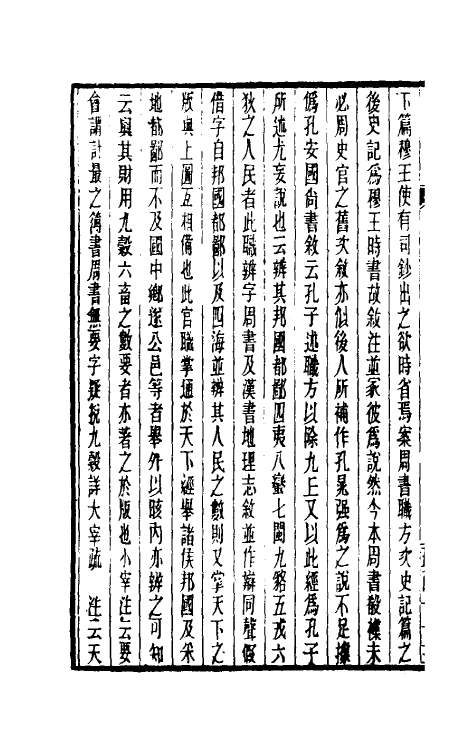 下篇穆王使有司鈔出之欲時省焉案周書職方次史記篇之
後史記爲穆王時書故敘注並冡彼爲說然今本周書殽襍未
必周史官之舊次敘亦似後人所補作孔晁强爲之說不足據
僞孔安國尙書敘云孔子述職方以除九丘又以此經爲孔子
所述尤妄說也云辨其邦國都鄙四夷八蠻七閩九貉五戎六
狄之人民者此職辨字周書及漢書地理志敘並作辯同聲假
借字自邦國都鄙以及四海並辨其人民之數則又掌天下之
版與上圖互相備也此官職掌通於天下經舉諸侯邦國及采
地都鄙而不及國中鄉遂公邑等者舉外以晐內亦辨之可知
云與其財用九穀六畜之數要者亦著之於版也小宰注云要
會謂計最之簿書周書無要字疑挩九穀詳大宰疏　注云天